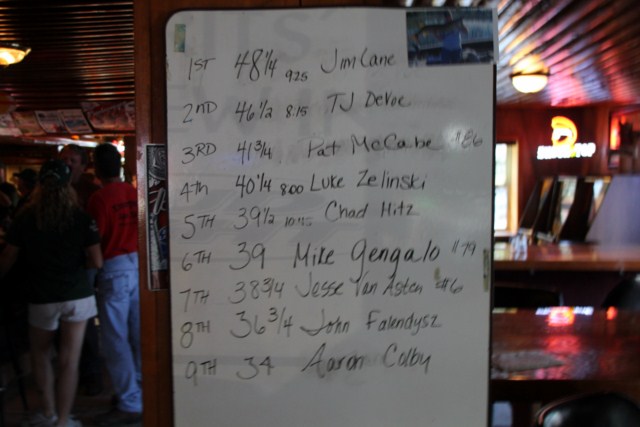 1ST 48 1/4 925 Jim Lane
2ND 46 1/2 8.15 TJ DeVoe
3RD 41 3/4 Pat McCabe #86
4th 40 1/4 800 Luke Zelinski
5TH 39 1/2 Chad Hitz
6TH 39 Mike Gengalo #79
7TH 38 3/4 Jesse Van Asten #6
8TH 36 3/4 John Falendysz
9TH 34 Aaron Colby